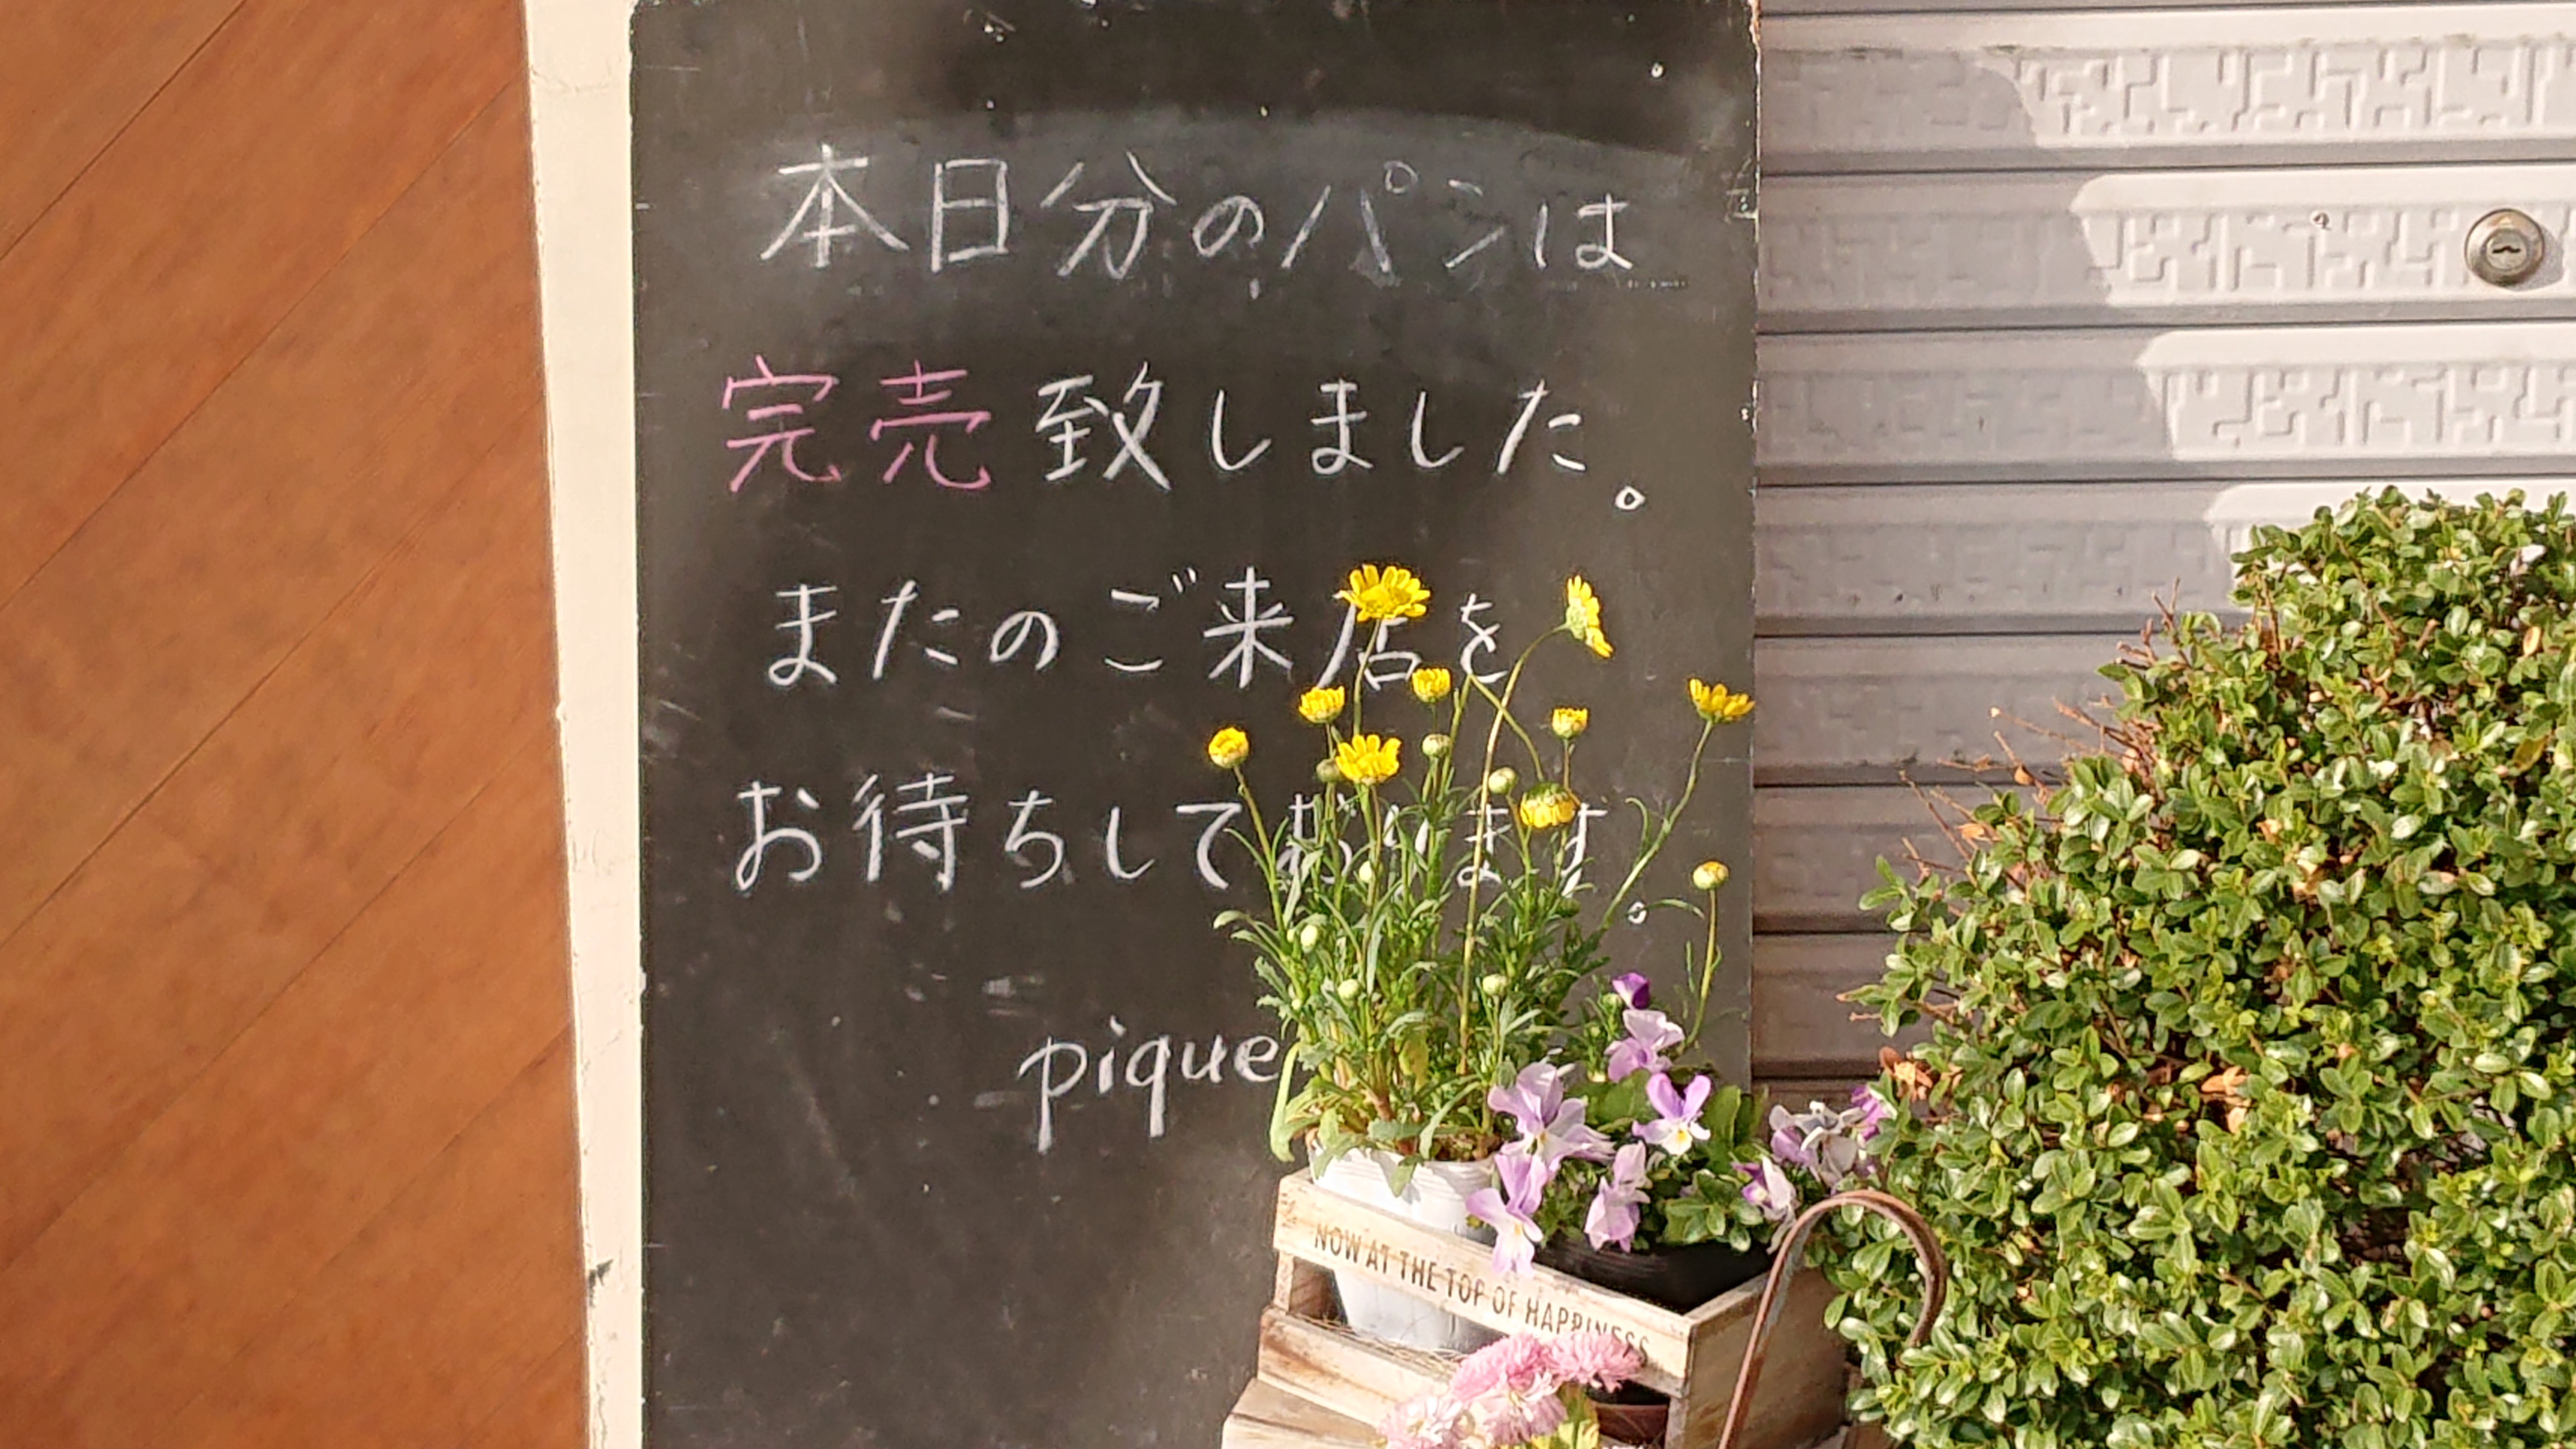 本日分のパンは
完売致しました。
またのご来店を
お待ちしております。
pique
NOW AT THE TOP OF HAPPINESS